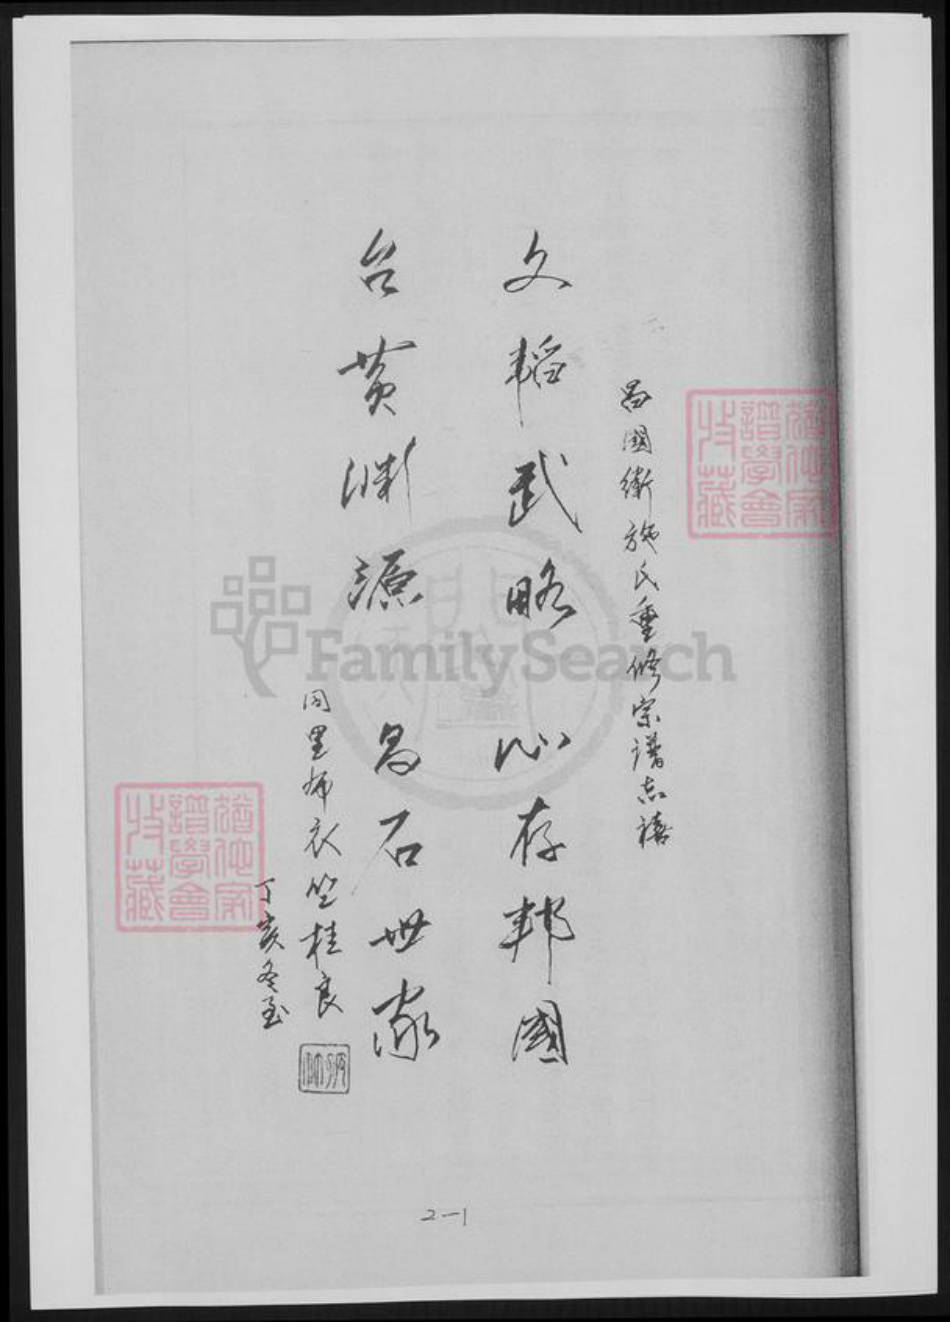 昌國衛施氏重修宗譜志禧
文韜武略心存邦國
台黄渊源昌石世家
同里布衣竺桂良
丁亥冬至
譜學會
收藏
譜學會
收藏
FamilySearch
2-1